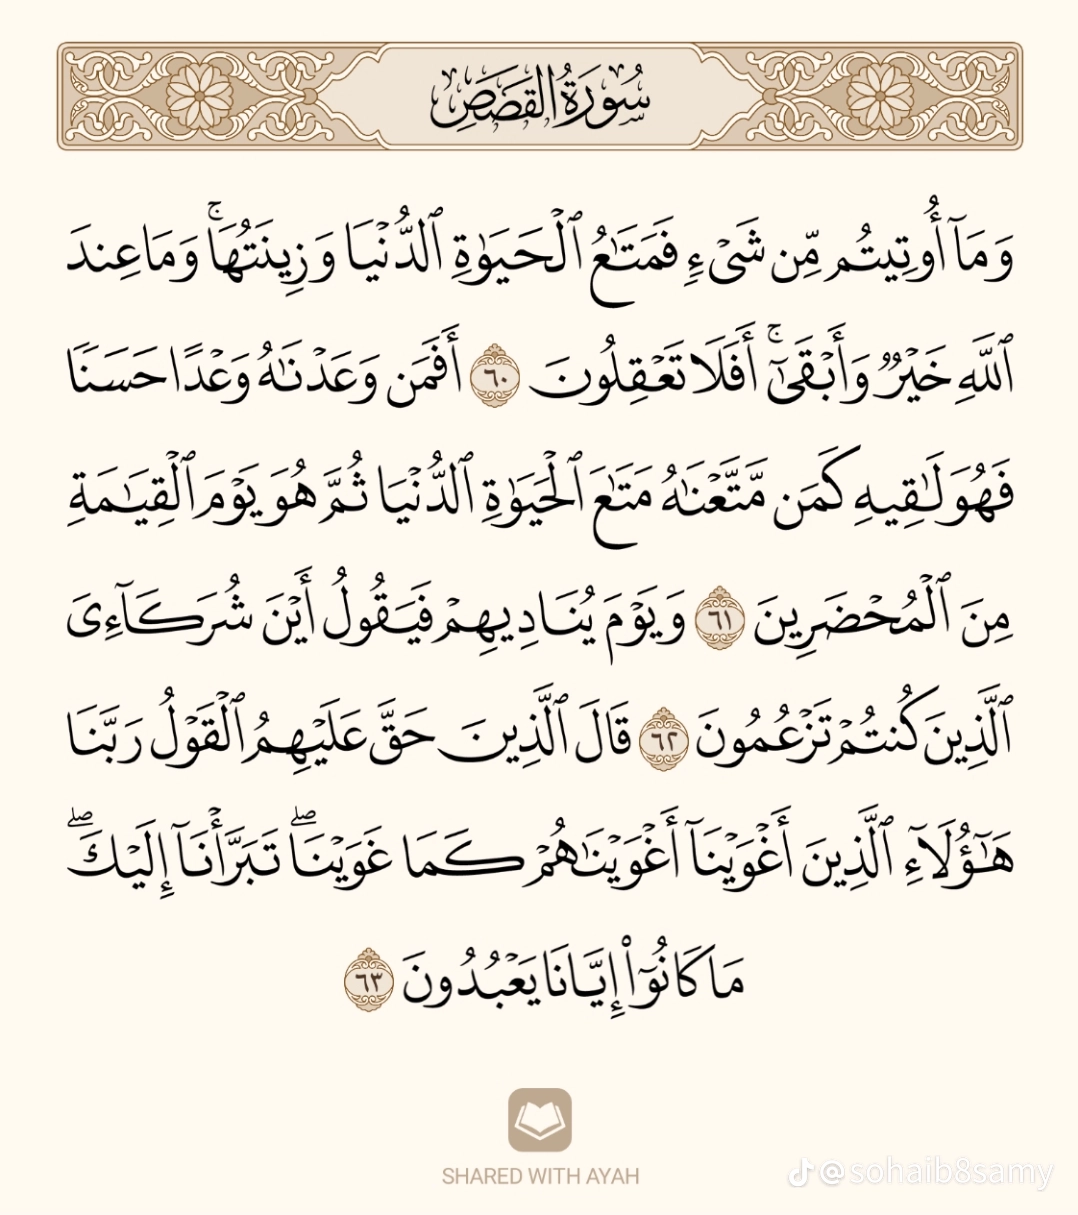 سُورَةُ القَصَصِ
وَمَآ أُوتِيتُم مِّن شَىْءٍ فَمَتَـٰعُ ٱلْحَيَوٰةِ ٱلدُّنْيَا وَزِينَتُهَا ۚ وَمَا عِندَ
ٱللَّهِ خَيْرٌ وَأَبْقَىٰٓ ۚ أَفَلَا تَعْقِلُونَ ٦٠ أَفَمَن وَعَدْنَـٰهُ وَعْدًا حَسَنًا
فَهُوَ لَـٰقِيهِ كَمَن مَّتَّعْنَـٰهُ مَتَـٰعَ ٱلْحَيَوٰةِ ٱلدُّنْيَا ثُمَّ هُوَ يَوْمَ ٱلْقِيَـٰمَةِ
مِنَ ٱلْمُحْضَرِينَ ٦١ وَيَوْمَ يُنَادِيهِمْ فَيَقُولُ أَيْنَ شُرَكَآءِىَ
ٱلَّذِينَ كُنتُمْ تَزْعُمُونَ ٦٢ قَالَ ٱلَّذِينَ حَقَّ عَلَيْهِمُ ٱلْقَوْلُ رَبَّنَا
هَـٰٓؤُلَآءِ ٱلَّذِينَ أَغْوَيْنَآ أَغْوَيْنَـٰهُمْ كَمَا غَوَيْنَا ۖ تَبَرَّأْنَآ إِلَيْكَ ۖ
مَا كَانُوٓا۟ إِيَّانَا يَعْبُدُونَ ٦٣
SHARED WITH AYAH
@sohaib8samy